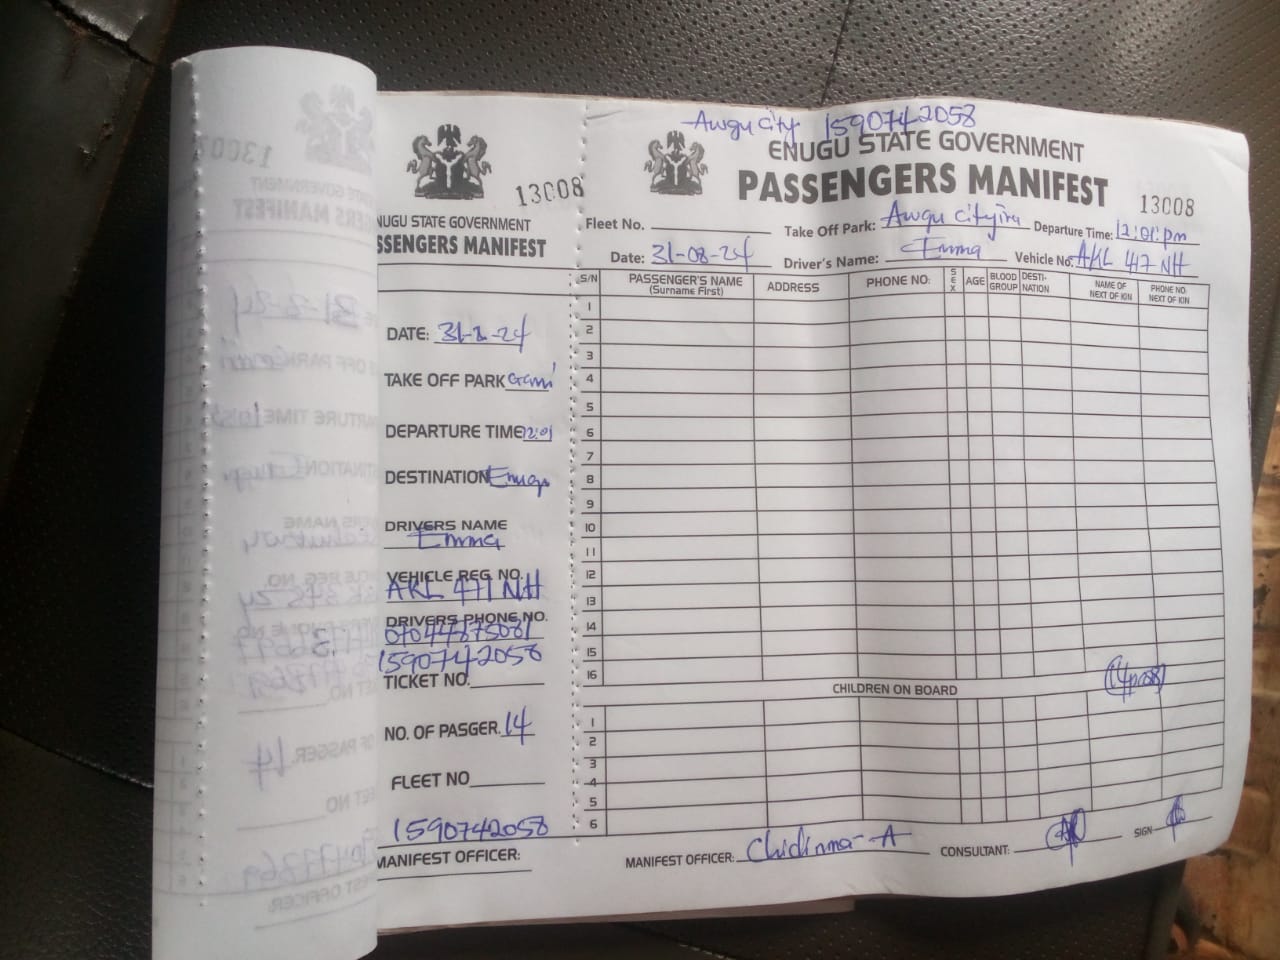 13008
NUGU STATE GOVERNMENT
SSENGERS MANIFEST
DATE: 31-8-24
TAKE OFF PARK
DEPARTURE TIME 12:01
DESTINATION Enugu
DRIVERS NAME
Emma
VEHICLE REG. NO.
AKL 471 NH
DRIVERS PHONE NO.
07044875081
1590742058
TICKET NO.
NO. OF PASGER. 14
FLEET NO
1590742058
MANIFEST OFFICER:
Awgu city 1590742058
ENUGU STATE GOVERNMENT
PASSENGERS MANIFEST
13008
Fleet No. Take Off Park: Awgu Departure Time: 12:01:pm
Date: 31-08-24 Driver's Name: Emma Vehicle No: AKL 417 NH
S/N PASSENGER'S NAME (Surname First) ADDRESS PHONE NO: SEX AGE BLOOD GROUP DESTI-NATION NAME OF NEXT OF KIN PHONE NO: NEXT OF KIN
1
2
3
4
5
6
7
8
9
10
11
12
13
14
15
16
CHILDREN ON BOARD
1
2
3
4
5
6
MANIFEST OFFICER: Chidinma-A CONSULTANT: SIGN